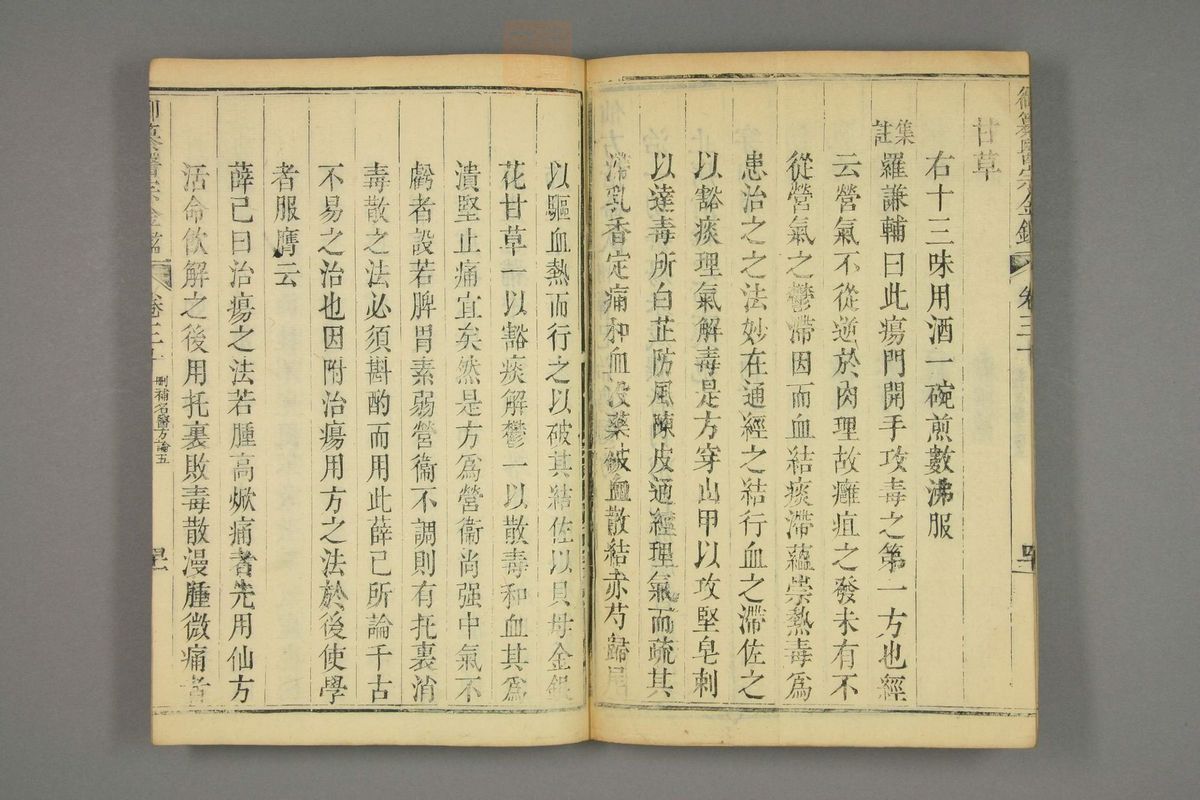 甘草
右十三味用酒一碗煎數沸服
集註羅謙輔曰此瘍門開手攻毒之第一方也經
云營氣不從逆於肉理故癰疽之發未有不
從營氣之鬱滯因而血結痰滯蘊崇熱毒爲
患治之之法妙在通經之結行血之滯佐之
以豁痰理氣解毒是方穿山甲以攻堅皂刺
以達毒所白芷防風陳皮通經理氣而疏其
滯乳香定痛和血没藥破血散結赤芍歸尾
以驅血熱而行之以破其結佐以貝母金銀
花甘草一以豁痰解鬱一以散毒和血其爲
潰堅止痛宜矣然是方爲營衞尚强中氣不
虧者設若脾胃素弱營衞不調則有托裏消
毒散之法必須斟酌而用此薛己所論千古
不易之治也因附治瘍用方之法於後使學
者服膺云
薛己曰治瘍之法若腫高焮痛者先用仙方
活命飲解之後用托裏敗毒散漫腫微痛者
御纂醫宗金鑑 卷三十 刪補名醫方論五